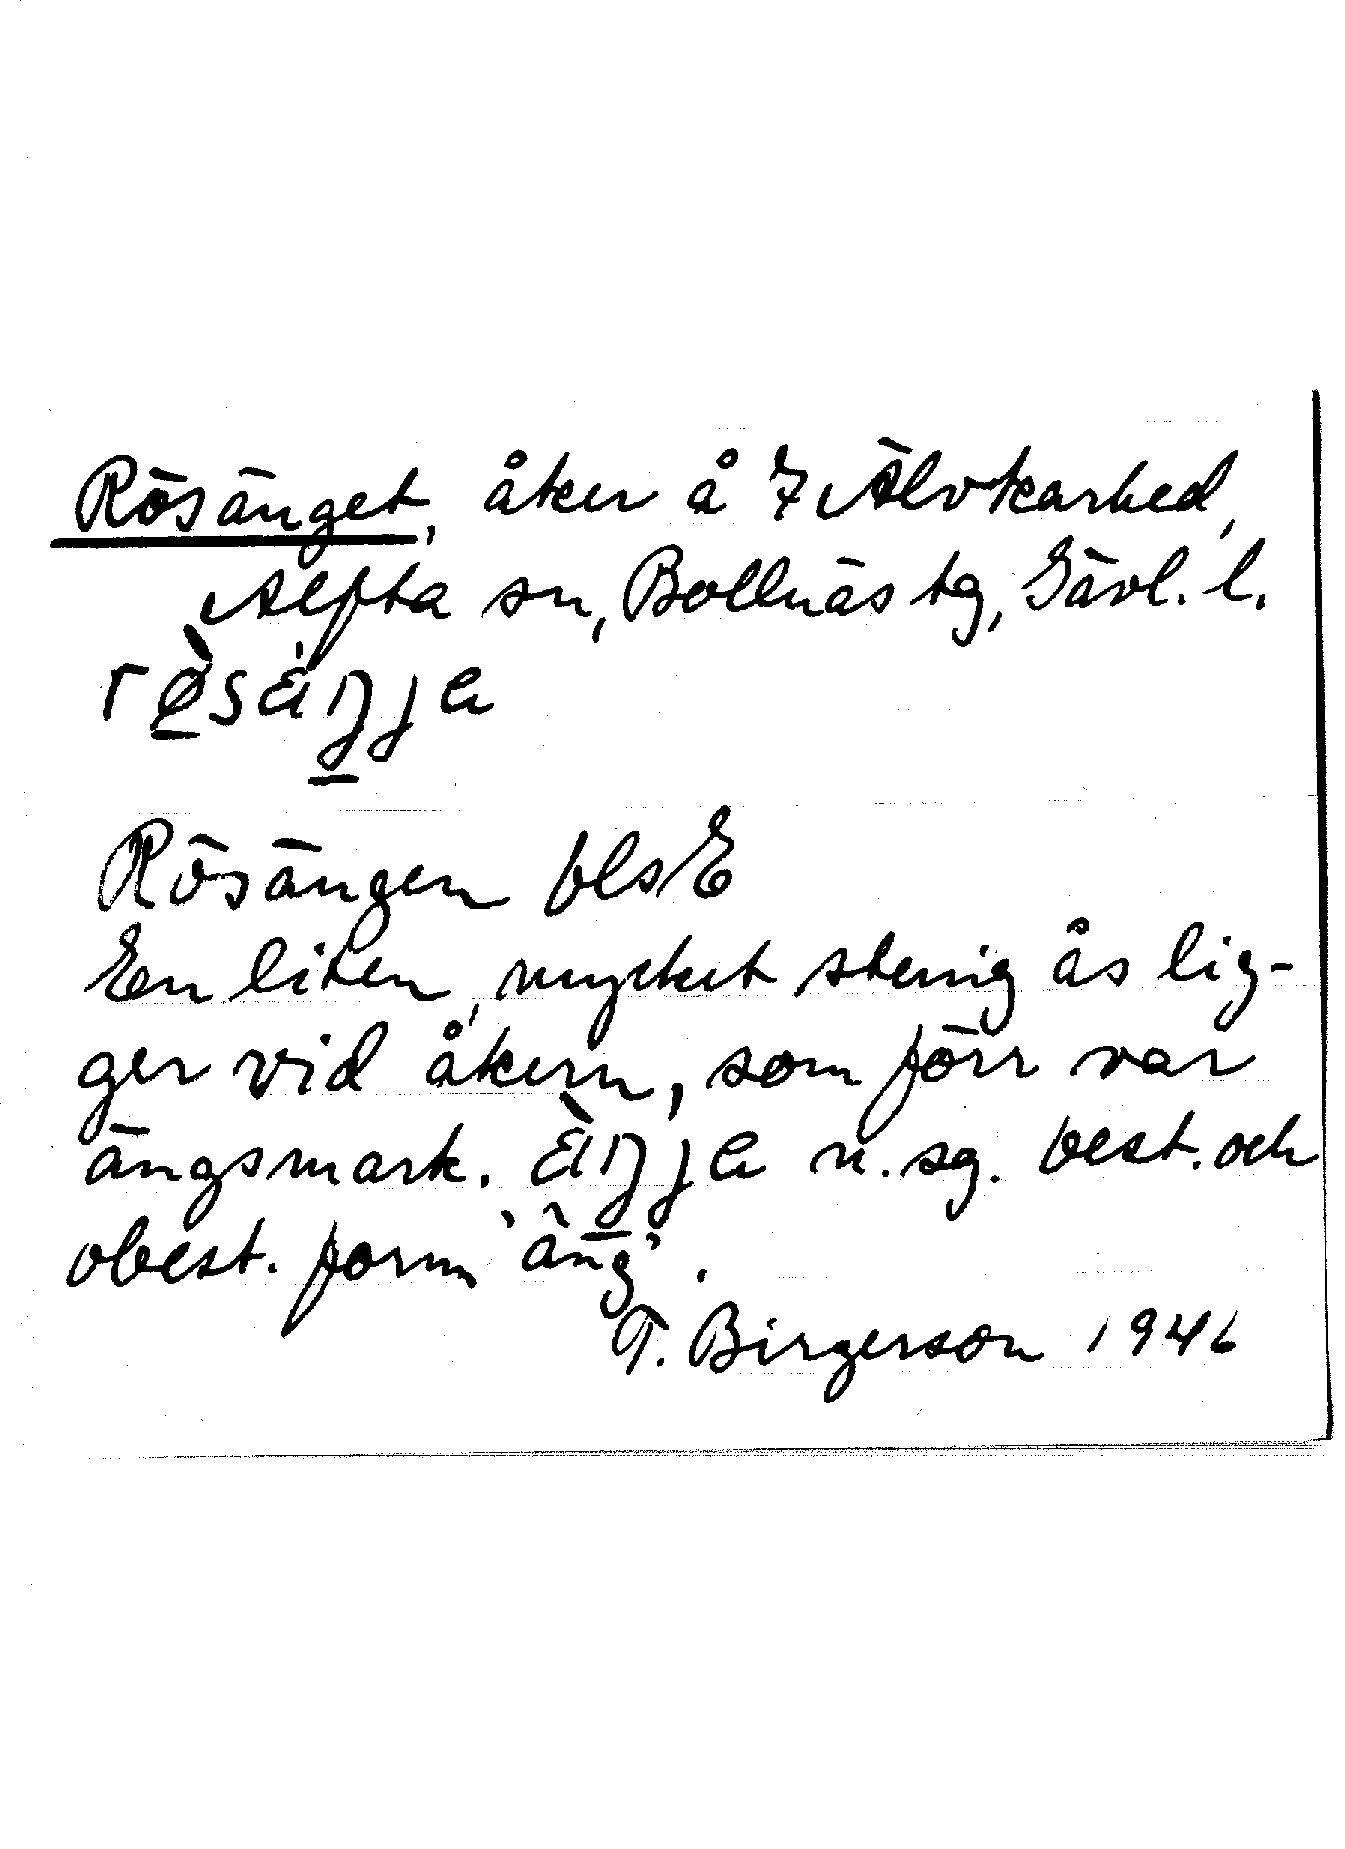 Rösänget, åker å 7 Älvkarhed,
Alfta sn, Bollnäs tg, Gävl. l.
rø̀säŋja
Rösängen bls E
En liten, mycket stenig ås lig-
ger vid åkern, som förr var
ängsmark. Ä̀ŋja n. sg. best. och
obest. form 'äng'.
T. Birgerson 1946